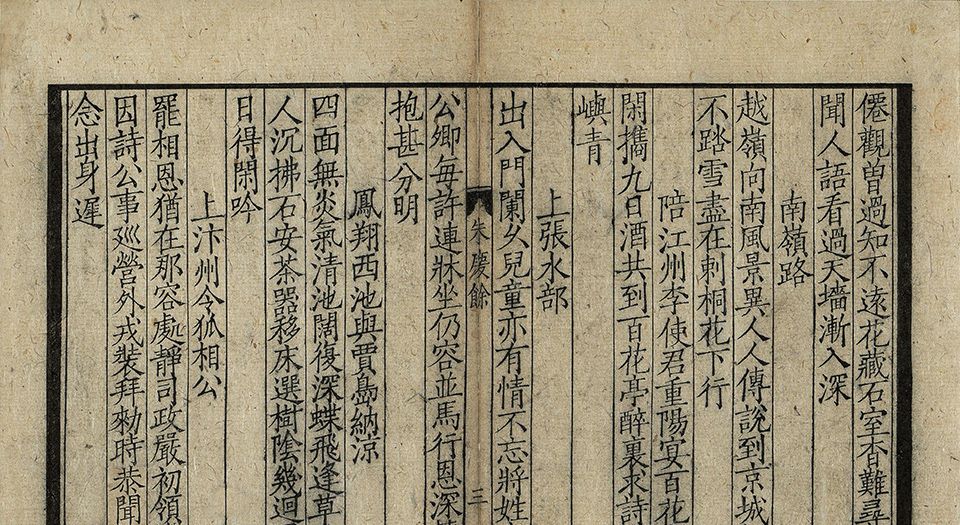 僊觀曽過知不遠花藏石室杳難尋
聞人語看過天墻漸入深
南嶺路
越嶺向南風景異人人傳說到京城
不踏雪盡在刺桐花下行
陪江州李使君重陽宴百花
閑攜九日酒共到百花亭醉裏求詩
嶼青
上張水部
出入門闌久兒童亦有情不忘將姓
朱慶餘
三
公卿每許連牀坐仍容並馬行恩深
抱甚分明
鳳翔西池與賈島納涼
四面無炎氣清池闊復深蝶飛逢草
人沉拂石安茶器移床選樹陰幾迴
日得閑吟
上汴州令狐相公
罷相恩猶在那容處靜司政嚴初領
因詩公事廵營外戎裝拜勑時恭聞
念出身遲